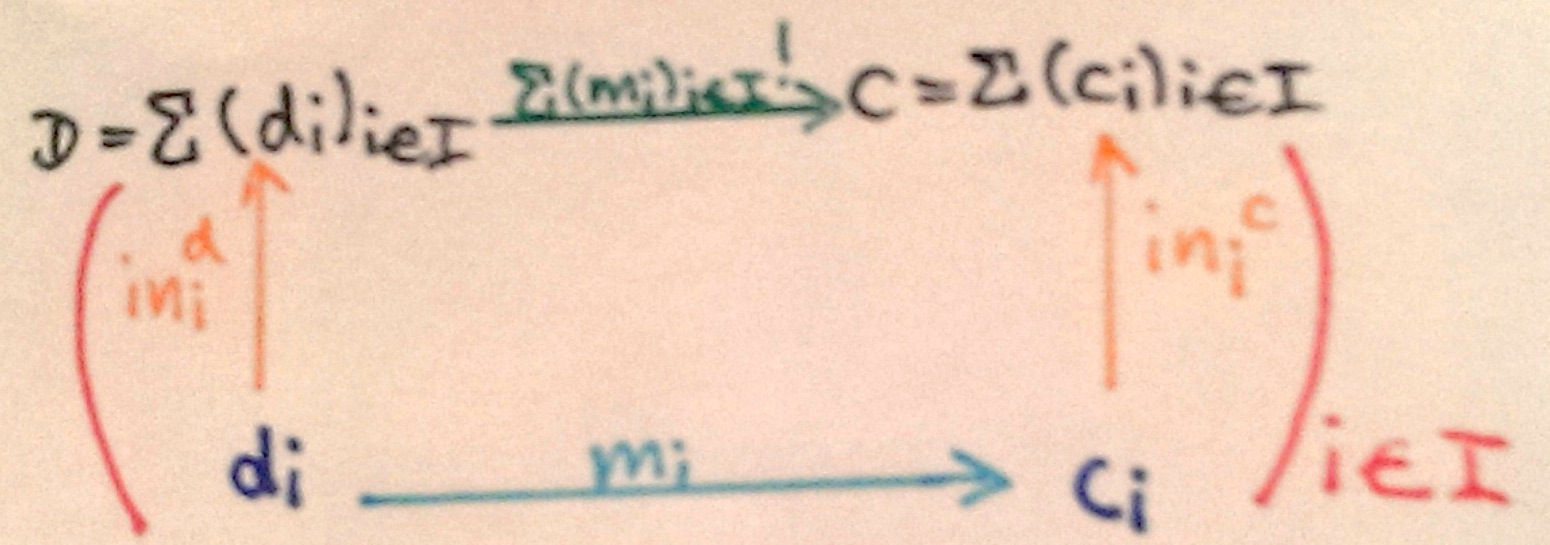 D = Σ(di)i∈I Σ(mi)i∈I ! C = Σ(ci)i∈I
in_i^d in_i^c
di mi ci i∈I